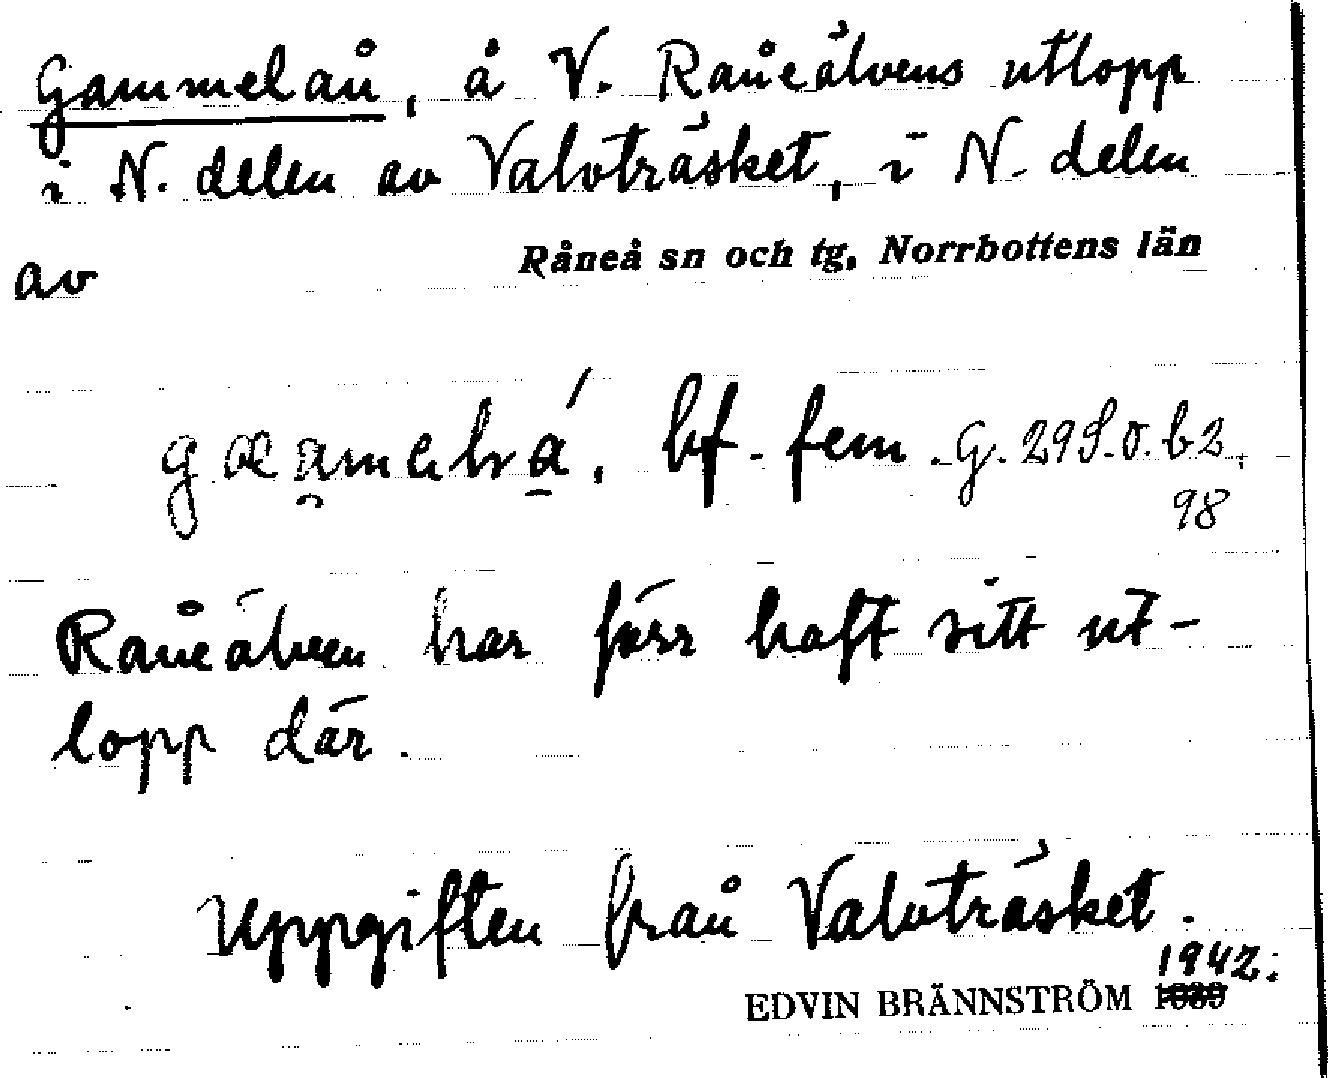 Gammelån, å V. Råneälvens utlopp
i N. delen av Valvträsket, i N. delen
av Råneå sn och tg, Norrbottens län
bf. fem. G. 29 S.O. b2,
98
Råneälven har förr haft sitt ut-
lopp där.
Uppgiften från Valvträsket.
1942:
EDVIN BRÄNNSTRÖM 1939